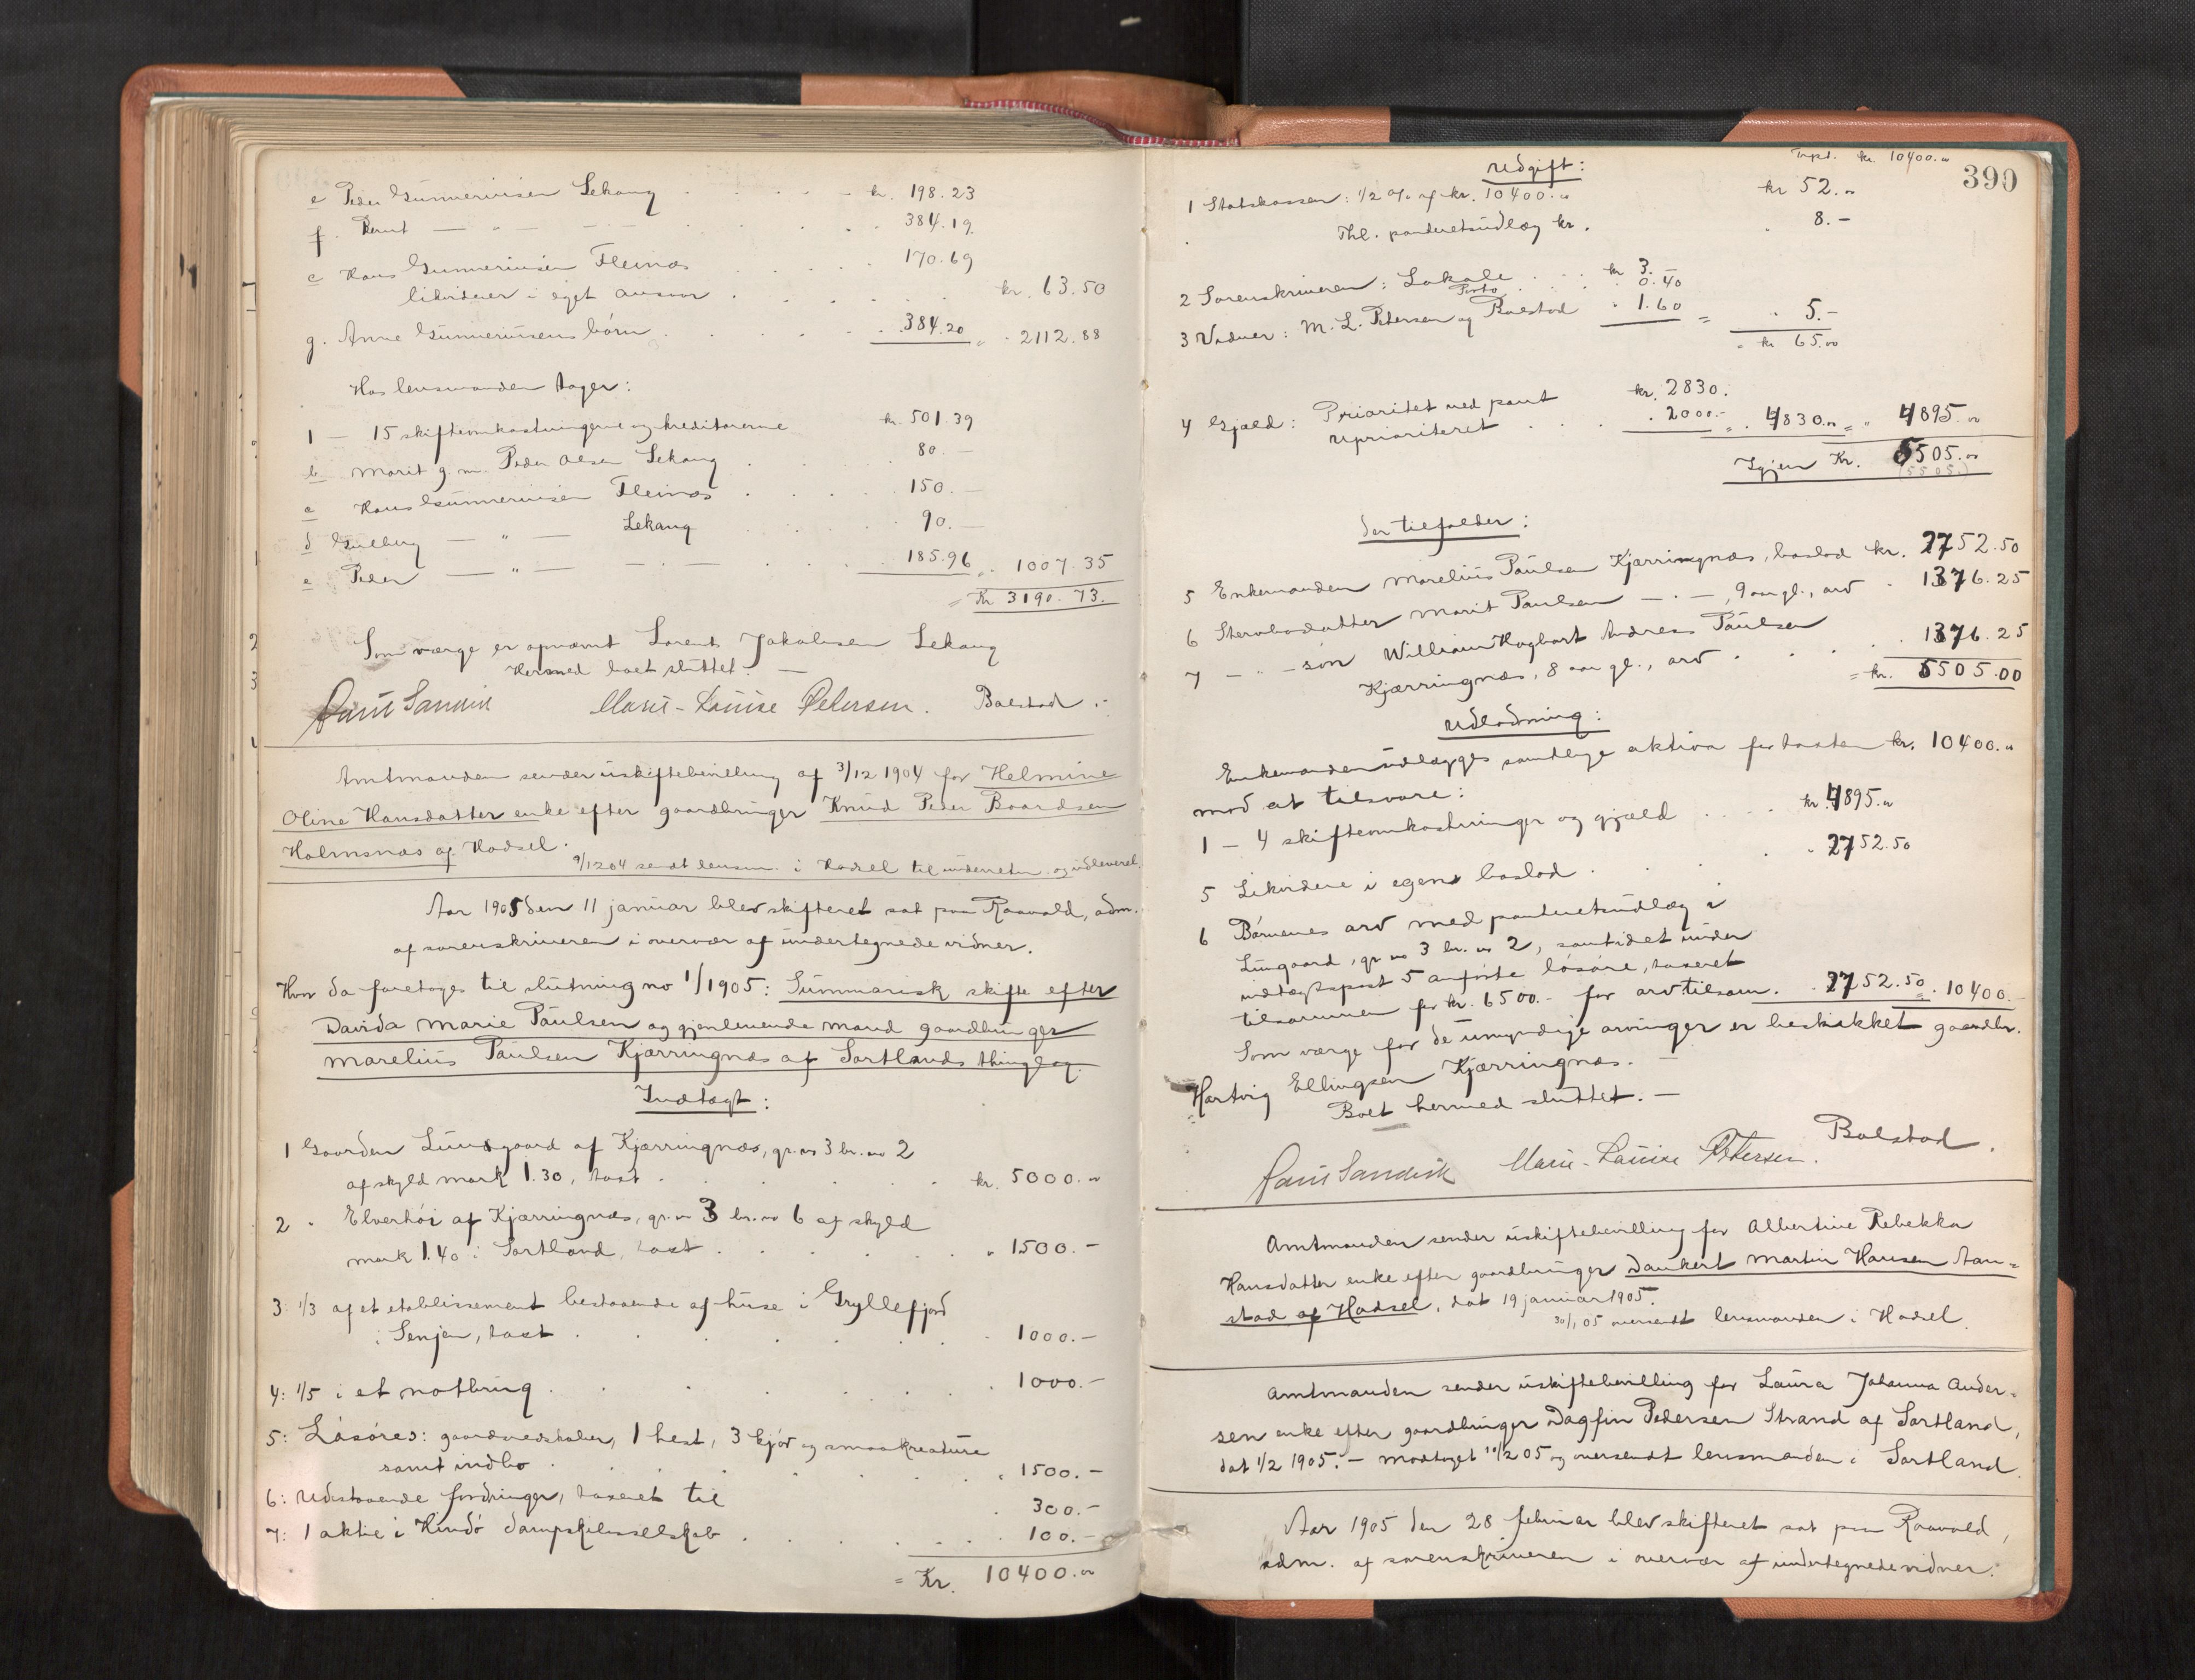 e Peder Gunneriussen Lekang . . . kr. 198.23
f. Bernt — " — — . — . . . 384.19.
c Hans Gunneriussen Fleinæs . . . 170.69
likviderer i eget ansvar . . . kr. 63.50
g. Anne Gunneriusens børn . . . 384.20 " 2112.88
Hos lensmanden tager:
1 — 15 skifteomkostningerne og kreditorerne kr. 501.39
b Marit g. m. Peder Olsen Lekang . . 80.—
c Hans Gunneriussen Fleinæs . . . 150.—
d Gulberg — " — Lekang . . . 90.—
e Peder — " — — . — . . . 185.96 " 1007.35
= Kr. 3190.73.
Som værge er opnævnt Lorents Jakobsen Lekang
Hermed boet sluttet. —
Marie-Louise Petersen. Bolstad.
Amtmanden sender uskiftebevilling af 3/12 1904 for Helmine
Oline Hansdatter enke efter gaardbruger Knud Peder Baardsen
Holmsnæs af Hadsel.
9/12 04 sendt lensm. i Hadsel til underretn. og udleverel.
Aar 1905 den 11 januar blev skifteret sat paa Raavald, adm.
af sorenskriveren i overvær af undertegnede vidner.
Hvor da foretoges til slutning no 1/1905: Summarisk skifte efter
Davida Marie Paulsen og gjenlevende mand gaardbruger
Marelius Paulsen Kjærringnæs af Sortlands thinglag.
Indtægt:
1 Gaarden Lungaard af Kjærringnæs, gr. no 3 br. no 2
af skyld mark 1.30, taxt . . . kr. 5000.00
2 " Elverhøi af Kjærringnæs, gr. no 3 br. no 6 af skyld
mark 1.40 i Sortland, taxt . . . " 1500.—
3: 1/3 af et etablissement bestaaende af huse i Gryllefjord
i Senjen, taxt . . . 1000.—
4: 1/5 i et notbrug . . . 1000.—
5: Løsøres: gaardsredskaber, 1 hest, 3 kjør og smaakreature
samt indbo . . . 1500.—
6: Udestaaende fordringer, taxeret til . 300.—
7: 1 aktie i Hindø dampskibsselskab . . . 100.—
= Kr. 10400.00
Trpt. kr. 10400.00
390
Udgift:
1 Statskassen: 1/2 % af kr. 10400.00 kr 52.00
Thl. panteretsudlæg kr. " 8.—
2 Sorenskriveren: Lokale . . . kr 3.—
Porto . . . " 0.40
3 Vidner: M. L. Petersen og Bolstad " 1.60 = " 5.—
= kr 65.00
4 Gjæld: Prioritet med pant kr. 2830.
uprioriteret . . . " 2000.— = " 4830.00 = " 4895.00
Igjen Kr. 5505.00
(5505.)
Der tilfalder:
5 Enkemanden Marelius Paulsen Kjærringnæs, boslod kr. 2752.50
6 Stervbodatter Marit Paulsen — . —, 9 aar gl., arv " 1376.25
7 — " — søn William Hagbart Andreas Paulsen
Kjærringnæs, 8 aar gl., arv . . . 1376.25
= kr. 5505.00
Udlodning:
Enkemanden udlægges samtlige aktiva for taxten kr. 10400.00
mod at tilsvare:
1 — 4 skifteomkostninger og gjæld . . . kr. 4895.00
5 Likvidere i egen boslod . . . " 2752.50
6 Børnenes arv med panteretsudlæg i
Lungaard, gr. no 3 br. no 2, samt i det under
indtægtspost 5 anførte løsøre, taxeret
tilsammen for kr. 6500.— for arv tilsam. " 2752.50 = " 10400.—
Som værge for de umyndige arvinger er beskikket gaardbr.
Hartvig Ellingsen Kjærringnæs. —
Boet hermed sluttet. —
Marie-Louise Petersen. Bolstad.
Amtmanden sender uskiftebevilling for Albertine Rebekka
Hansdatter enke efter gaardbruger Dankert Martin Hansen Aan=
stad af Hadsel, dat 19 januar 1905.
30/1 05 oversendt lensmanden i Hadsel.
Amtmanden sender uskiftebevilling for Laura Johanna Ander=
sen enke efter gaardbruger Dagfin Pedersen Strand af Sortland,
dat 1/2 1905. — modtaget 10/2 05 og oversendt lensmanden i Sortland.
Aar 1905 den 28 februar blev skifteret sat paa Raavald,
adm. af sorenskriveren i overvær af undertegnede vidner.